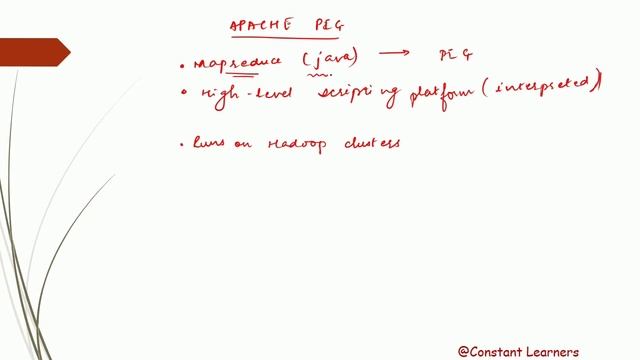 APACHE PIG
• Mapreduce (java) → PIG
• High-level scripting platform (interpreted)
• Runs on Hadoop clusters
@Constant Learners